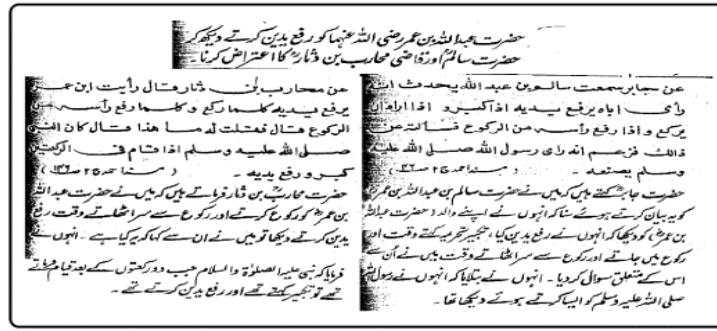 حضرت عبداللہ بن عمر رضی اللہ عنہما کو رفع یدین کرتے دیکھ کر
حضرت سالمؒ اور قاضی محارب بن دثارؒ کا اعتراض کرنا۔
عن جابر سمعت سالم بن عبد الله يحدث انه
رأى اباه يرفع يديه اذا كبر و اذا اراد ان
يركع و اذا رفع رأسه من الركوع فسألته عن
ذالك فزعم انه رأى رسول الله صلى الله عليه
وسلم يصنعه ۔ (مسند احمد ج ۲ ص)
حضرت جابرؒ کہتے ہیں کہ میں نے حضرت سالم بن عبداللہ بن عمرؓ
کو یہ بیان کرتے ہوئے سنا کہ انہوں نے اپنے والد (حضرت عبداللہ
بن عمرؓ) کو دیکھا کہ انہوں نے رفع یدین کیا، تکبیر تحریمہ کہتے وقت اور
رکوع میں جاتے اور رکوع سے سر اٹھاتے وقت میں نے اُن سے
اس کے متعلق سوال کر دیا۔ انہوں نے بتلایا کہ انہوں نے رسول اللہ
صلی اللہ علیہ وسلم کو ایسا کرتے ہوئے دیکھا تھا۔
عن محارب بن دثار قال رأيت ابن عمر
يرفع يديه كلما ركع و كلما رفع رأسه من
الركوع قال فقلت له ما هذا قال كان النبي
صلى الله عليه وسلم اذا قام فى الركعتين
كبر و رفع يديه ۔ (مسند احمد ج ۲ ص)
حضرت محارب بن دثارؒ فرماتے ہیں کہ میں نے حضرت عبداللہ
بن عمرؓ کو رکوع کرتے اور رکوع سے سر اٹھاتے وقت رفع
یدین کرتے دیکھا تو میں نے ان سے کہا کہ یہ کیا ہے۔ انہوں نے
فرمایا کہ نبی علیہ الصلوٰۃ والسلام جب دو رکعتوں کے بعد قیام فرماتے
تھے تو تکبیر کہتے تھے اور رفع یدین کرتے تھے۔